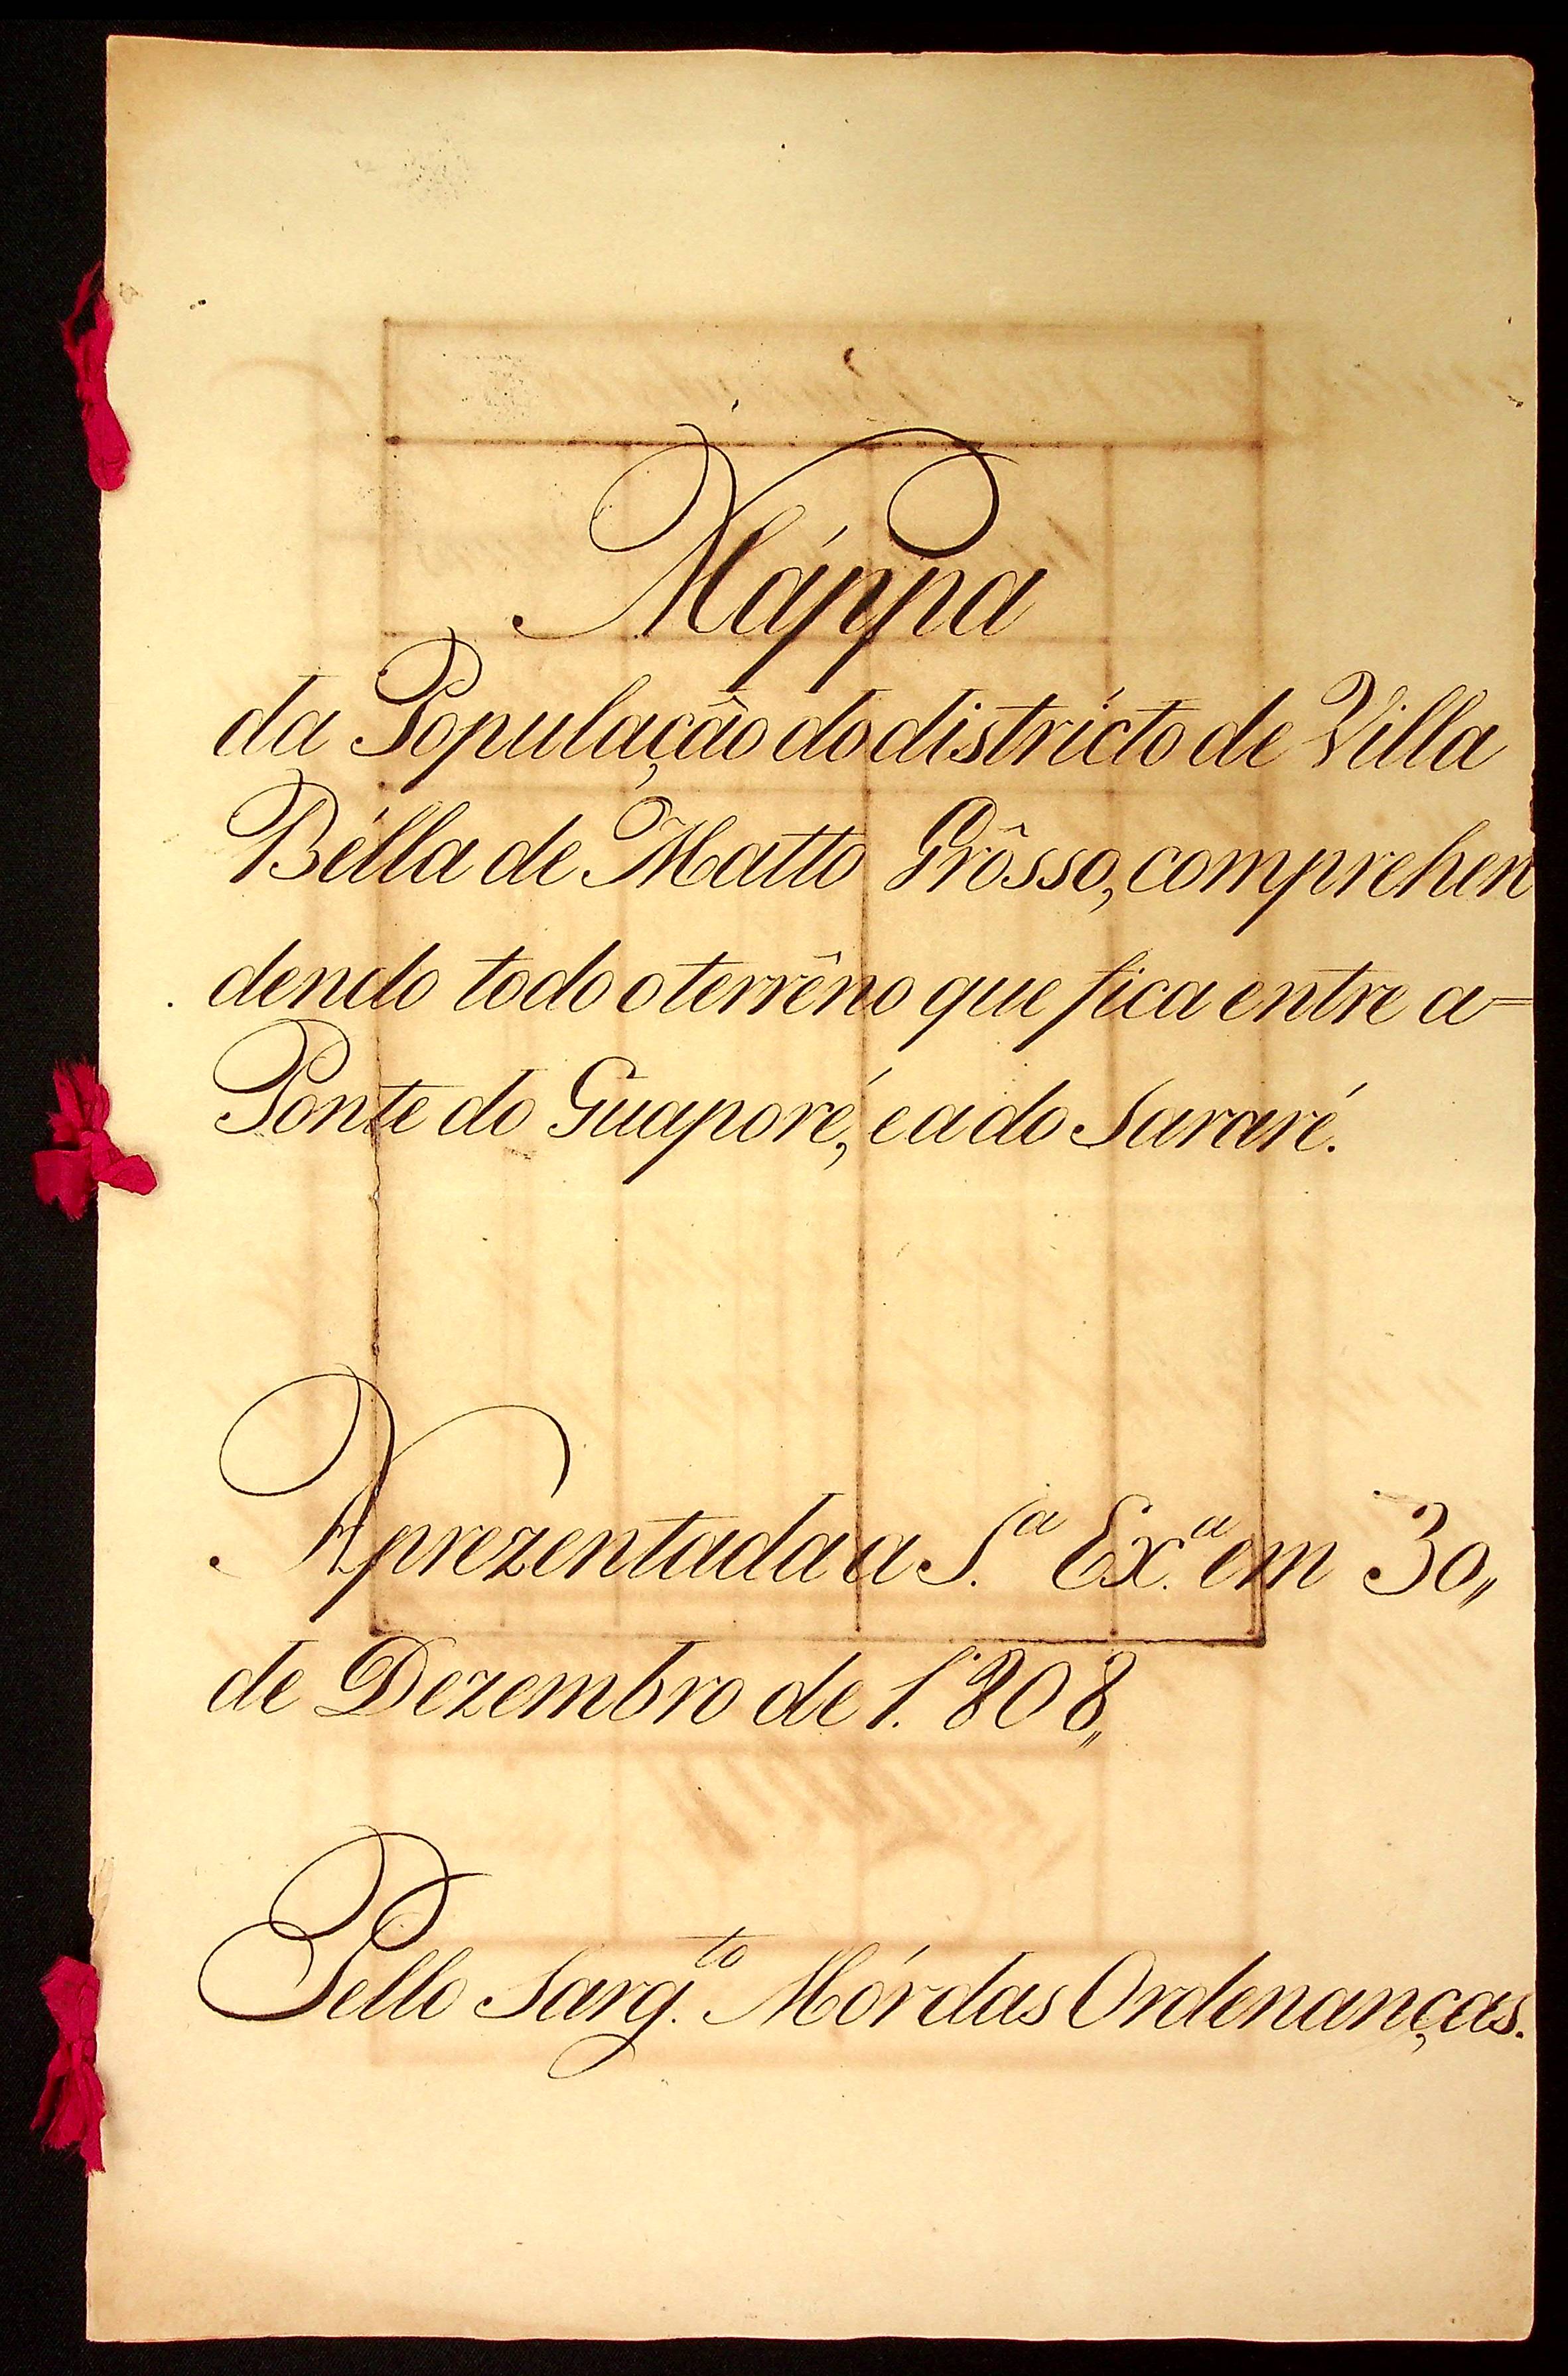 Máppa
da População do districto de Villa
Bélla de Matto Grôsso, comprehen
dendo todo o terrêno que fica entre a=
Ponte do Guaporé, e a do Sararé.
Aprezentada a S.ª Ex.ª em 30,,
de Dezembro de 1.808,,
Pello Sarg.to Mór das Ordenanças.